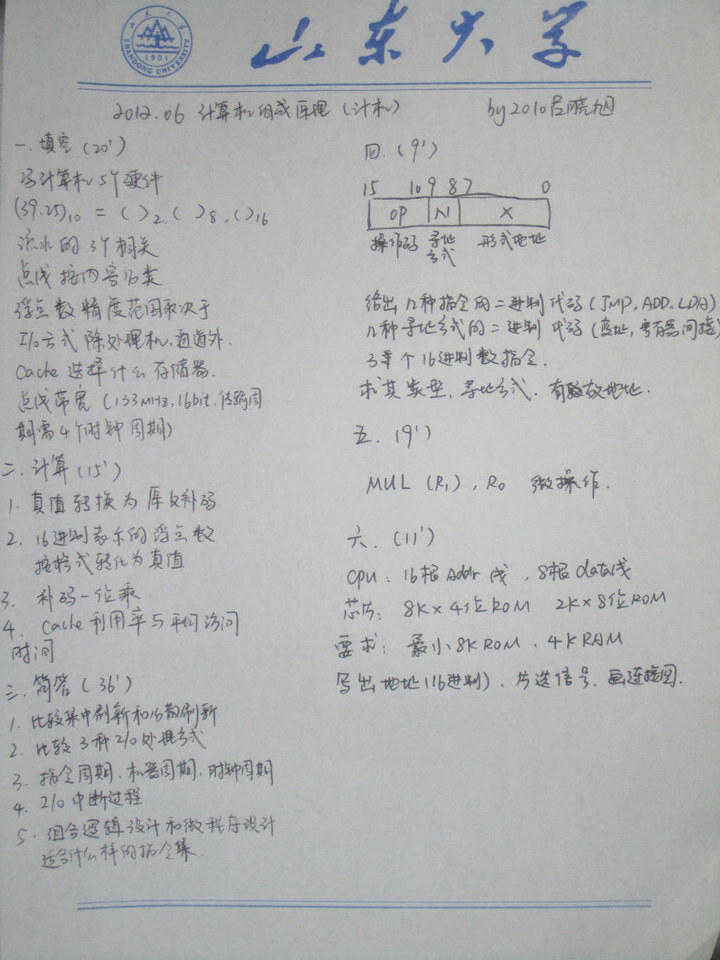 山东大学
SHANDONG UNIVERSITY
1901
2012.06 计算机组成原理（计机） by 2010吕晓旭
一. 填空（20'）
写计算机5个硬件
(39.25)10 = ( )2, ( )8, ( )16
流水的3个相关
总线按内容分类
浮点数精度范围取决于
I/O方式除处理机、通道外.
Cache选择什么存储器.
总线带宽（133MHz, 16bit, 传输周
期需4个时钟周期）
二. 计算（15'）
1. 真值转换为原反补码
2. 16进制表示的浮点数
按格式转化为真值
3. 补码一位乘
4. Cache利用率与平均访问
时间
三. 简答（36'）
1. 比较集中刷新和分散刷新
2. 比较3种I/O处理方式
3. 指令周期. 机器周期. 时钟周期
4. I/O中断过程
5. 组合逻辑设计和微程序设计
适合什么样的指令集
四. (9')
15 10 9 8 7 0
OP N X
操作码 寻址方式 形式地址
给出几种指令的二进制代码（JMP, ADD, LDA）
几种寻址方式的二进制代码（变址, 寄存器, 间接）
3条个16进制数指令.
求其类型, 寻址方式. 有效地址.
五. (9')
MUL (R1), R0 微操作.
六. (11')
CPU: 16根Addr线, 8根data线
芯片: 8K×4位ROM 2K×8位ROM
要求: 最小8K ROM, 4K RAM
写出地址(16进制), 片选信号. 画连接图.